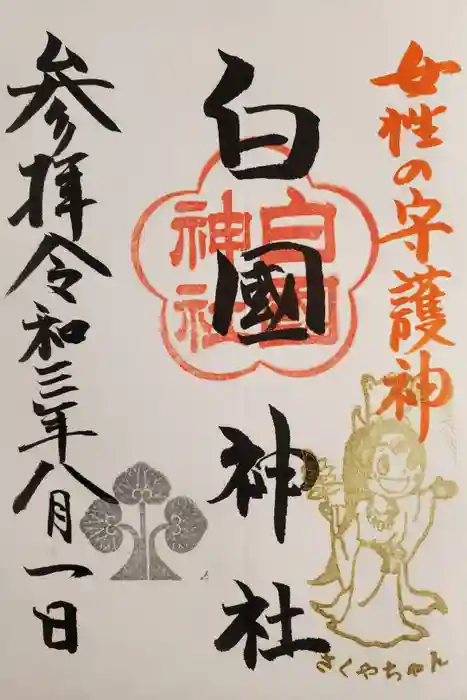 女性の守護神
さくやちゃん
白國神社
白国神社
参拝令和三年八月一日